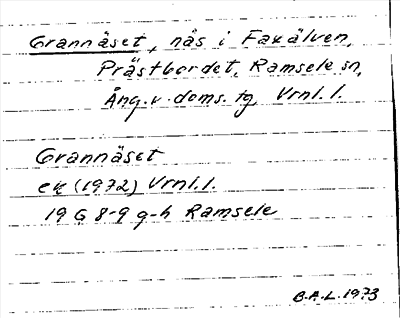 Grannäset, näs i Faxälven,
Prästbordet, Ramsele sn,
Ång. v. doms. tg, Vrnl. l.
Grannäset
ek (1972) Vrnl. l.
19 G 8-9 g-h Ramsele
B.A.L. 1973